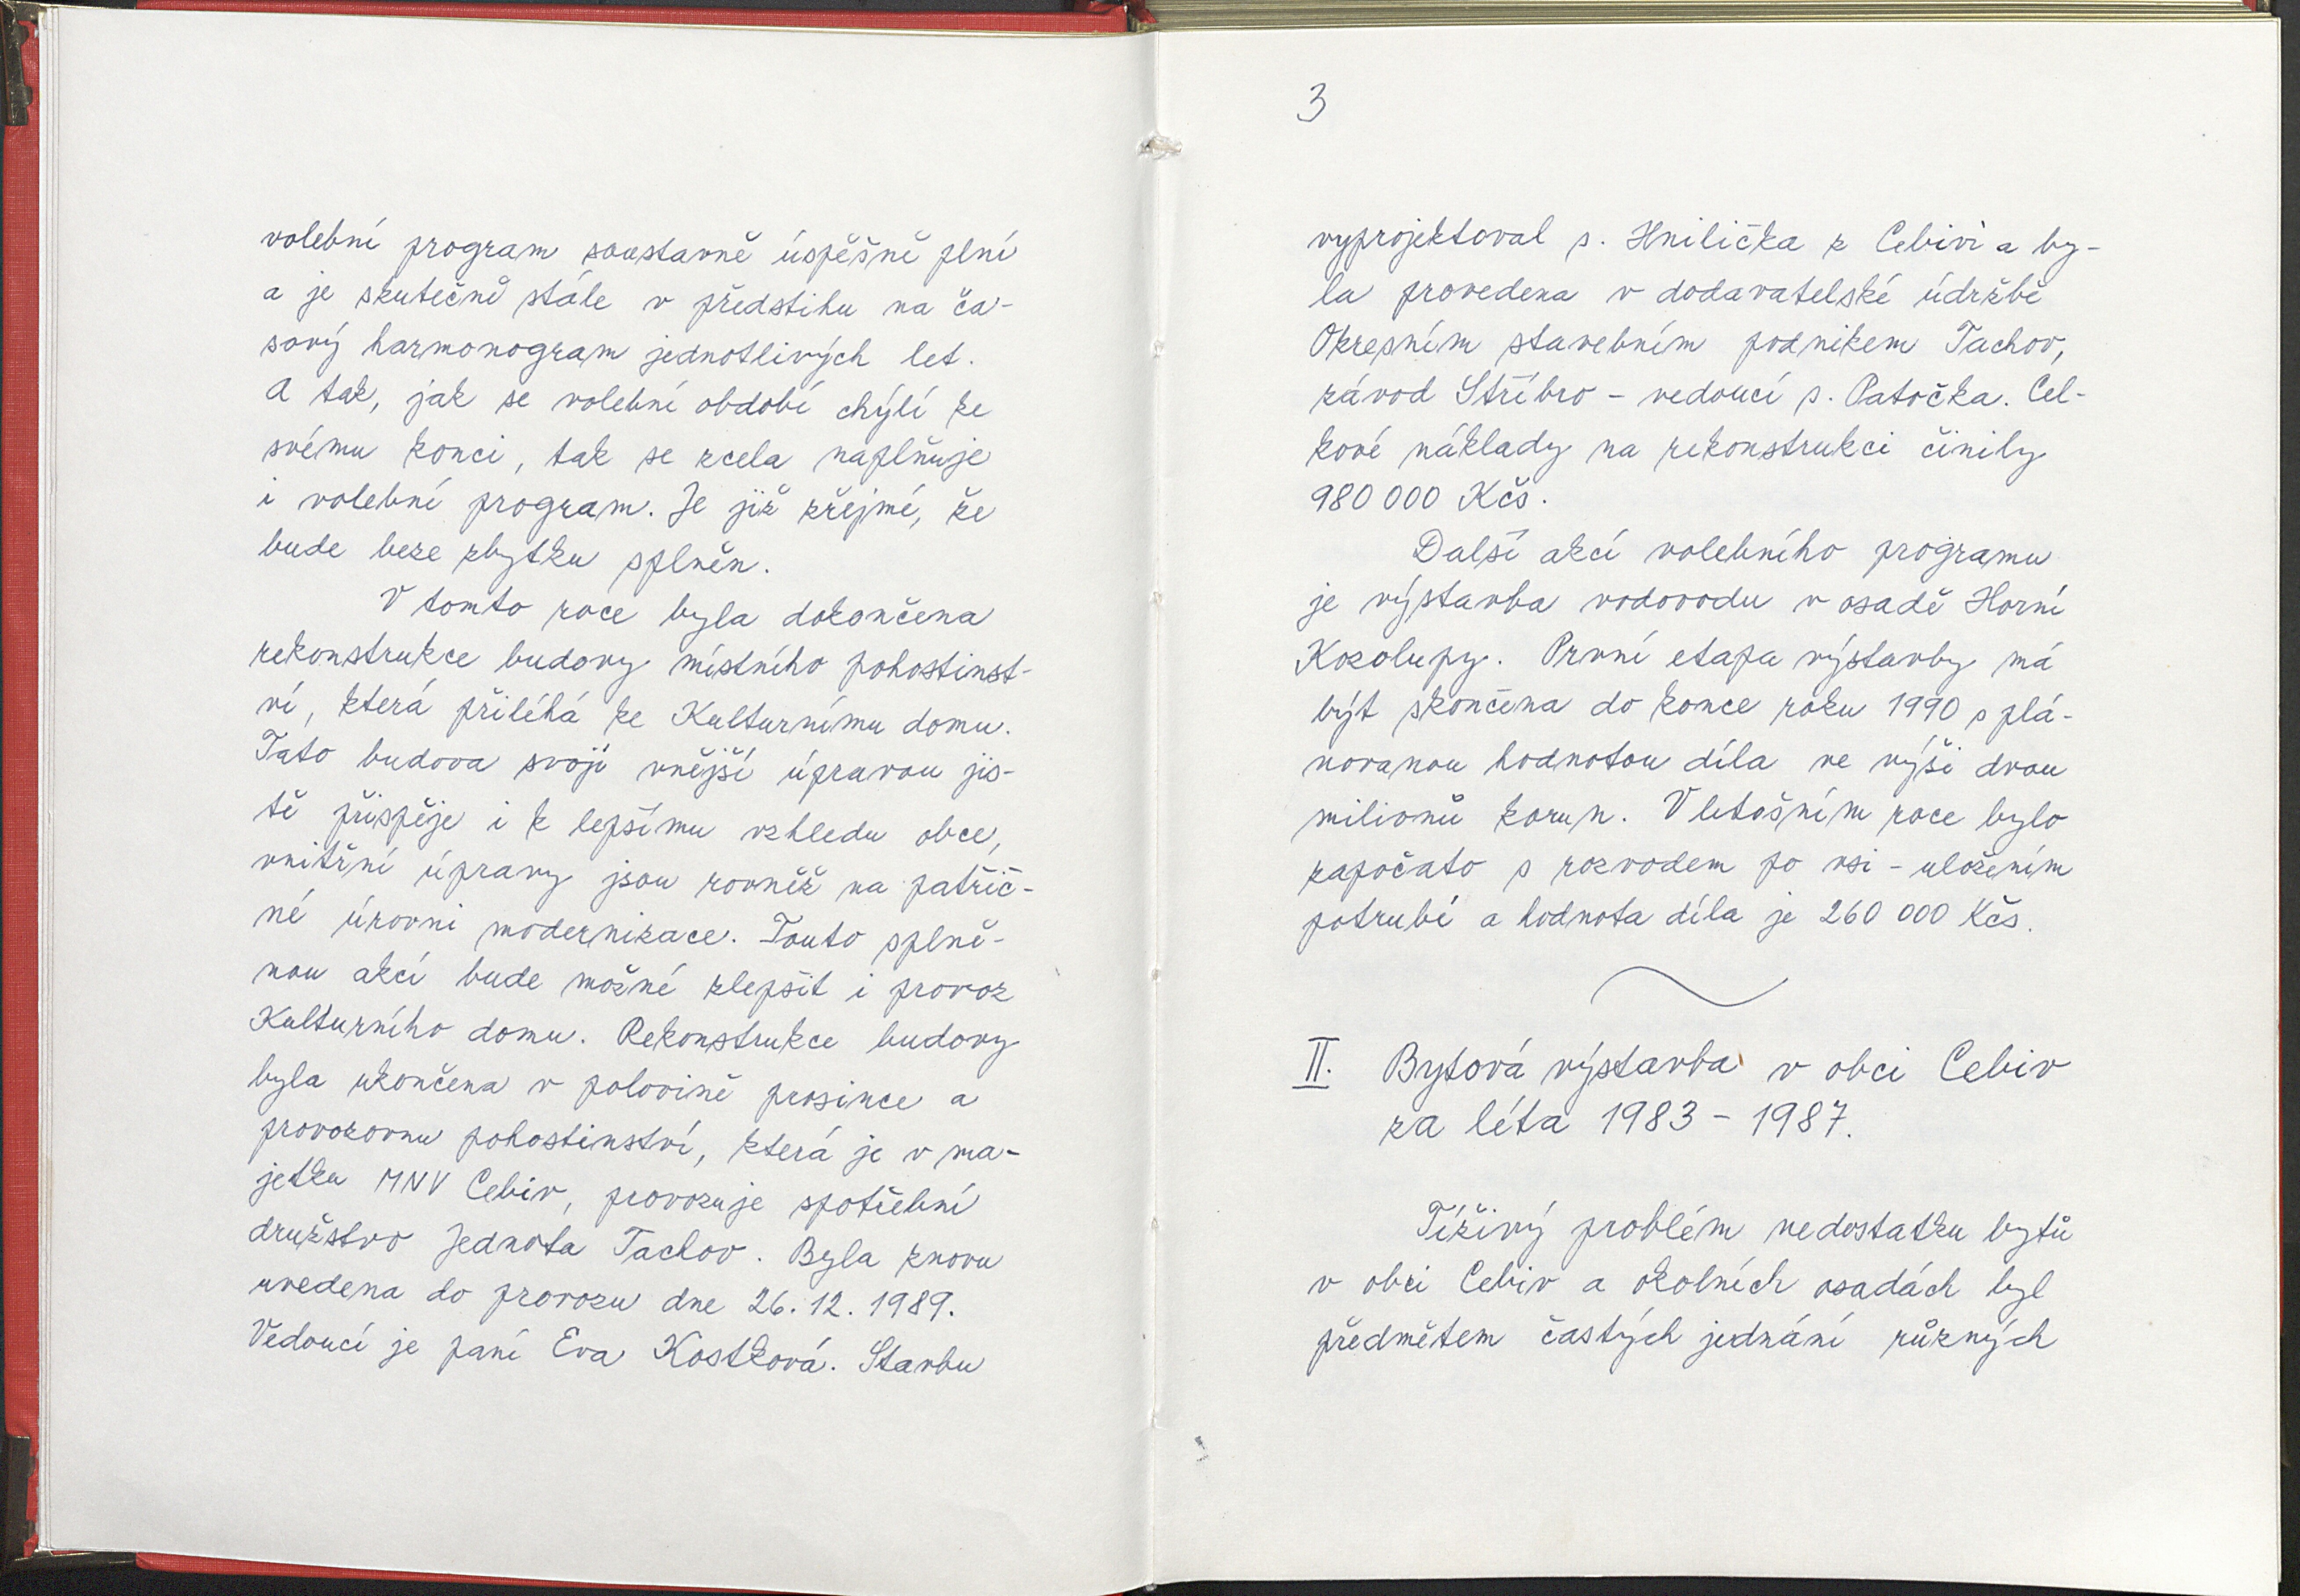 volební program soustavně úspěšně plní
a je skutečně stále v předstihu na ča-
sový harmonogram jednotlivých let.
A tak, jak se volební období chýlí ke
svému konci, tak se zcela naplňuje
i volební program. Je již zřejmé, že
bude beze zbytku splněn.
V tomto roce byla dokončena
rekonstrukce budovy místního pohostinst-
ví, která přiléhá ke Kulturnímu domu.
Tato budova svojí vnější úpravou jis-
tě přispěje i k lepšímu vzhledu obce,
vnitřní úpravy jsou rovněž na patřič-
né úrovni modernizace. Touto splně-
nou akcí bude možné zlepšit i provoz
Kulturního domu. Rekonstrukce budovy
byla ukončena v polovině prosince a
provozovnu pohostinství, která je v ma-
jetku MNV Cebiv, provozuje spotřební
družstvo Jednota Tachov. Byla znovu
uvedena do provozu dne 26. 12. 1989.
Vedoucí je paní Eva Kostková. Stavbu
3
vyprojektoval s. Hnilička z Cebivi a by-
la provedena v dodavatelské údržbě
Okresním stavebním podnikem Tachov,
závod Stříbro - vedoucí s. Patočka. Cel-
kové náklady na rekonstrukci činily
980 000 Kčs.
Další akcí volebního programu
je výstavba vodovodu v osadě Horní
Kozolupy. První etapa výstavby má
být skončena do konce roku 1990 s plá-
novanou hodnotou díla ve výši dvou
milionů korun. V letošním roce bylo
započato s rozvodem po vsi - uložením
potrubí a hodnota díla je 260 000 Kčs.
II. Bytová výstavba v obci Cebiv
za léta 1983 - 1987.
Tíživý problém nedostatku bytů
v obci Cebiv a okolních osadách byl
předmětem častých jednání různých